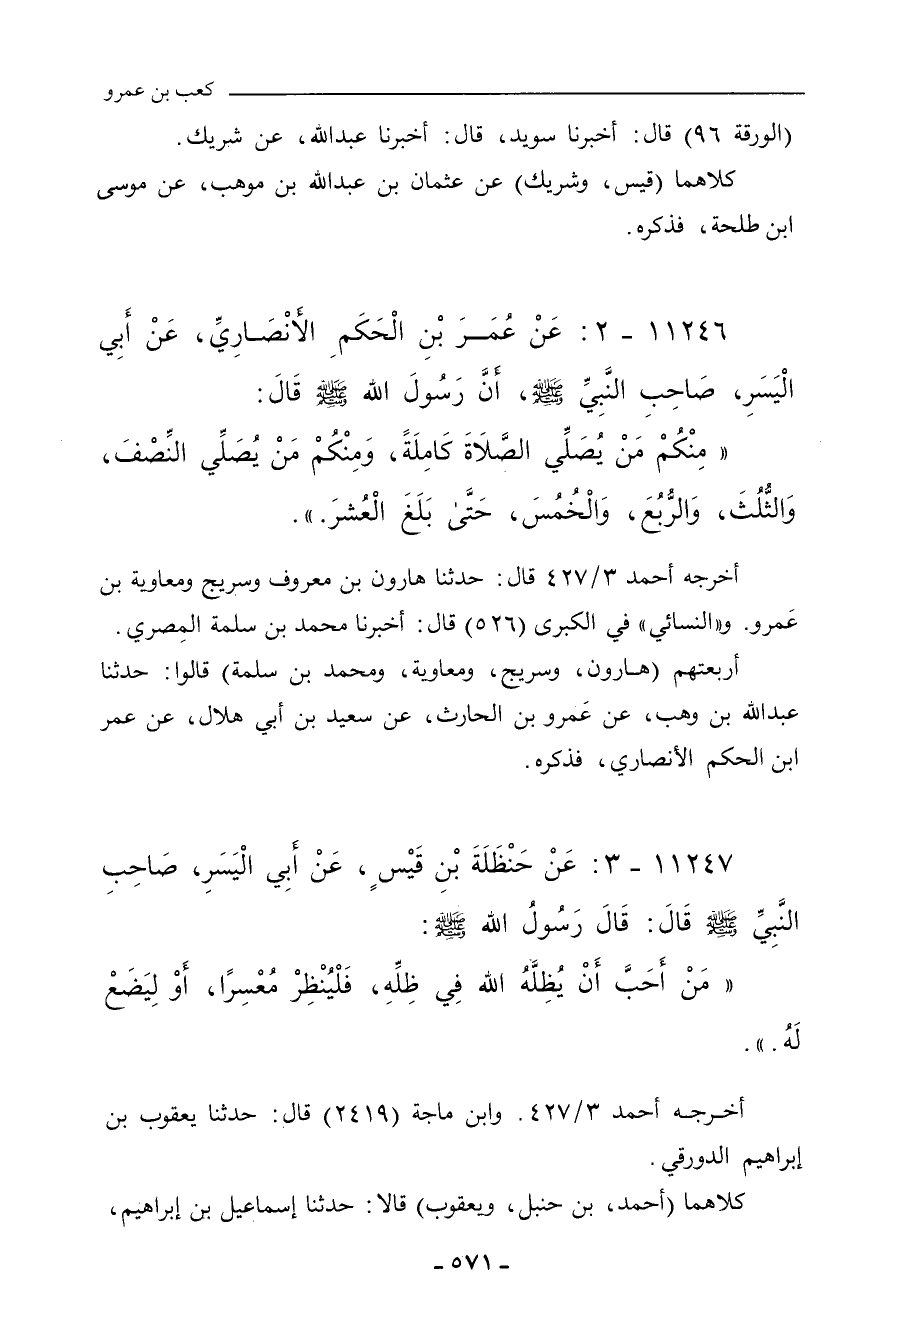 كعب بن عمرو
(الورقة ٩٦) قال: أخبرنا سويد، قال: أخبرنا عبدالله، عن شريك.
كلاهما (قيس، وشريك) عن عثمان بن عبدالله بن موهب، عن موسى
ابن طلحة، فذكره.
١١٢٤٦ - ٢: عَنْ عُمَـرَ بْنِ الْحَكَمِ الأَنْصَـارِيِّ، عَنْ أَبِي
الْيَسَرِ، صَاحِبِ النَّبِيِّ ﷺ، أَنَّ رَسُولَ الله ﷺ قَالَ:
« مِنْكُمْ مَنْ يُصَلِّي الصَّلَاةَ كَامِلَةً، وَمِنْكُمْ مَنْ يُصَلِّي النِّصْفَ،
وَالثُّلُثَ، وَالرُّبُعَ، وَالْخُمُسَ، حَتَّى بَلَغَ الْعُشرَ.».
أخرجه أحمد ٤٢٧/٣ قال: حدثنا هارون بن معروف وسريج ومعاوية بن
عَمرو. و«النسائي» في الكبرى (٥٢٦) قال: أخبرنا محمد بن سلمة المِصري.
أربعتهم (هـارون، وسريج، ومعاوية، ومحمد بن سلمة) قالوا: حدثنا
عبدالله بن وهب، عن عَمرو بن الحارث، عن سعيد بن أبي هلال، عن عمر
ابن الحكم الأنصاري، فذكره.
١١٢٤٧ - ٣: عَنْ حَنْظَلَةَ بْنِ قَيْسٍ، عَنْ أَبِي الْيَسَرِ، صَاحِبِ
النَّبِيِّ ﷺ قَالَ: قَالَ رَسُولُ الله ﷺ:
« مَنْ أَحَبَّ أَنْ يُظِلَّهُ الله فِي ظِلِّهِ، فَلْيُنْظِرْ مُعْسِرًا، أَوْ لِيَضَعْ
لَهُ.».
أخـرجـه أحمد ٤٢٧/٣. وابن ماجة (٢٤١٩) قال: حدثنا يعقوب بن
إبراهيم الدورقي.
كلاهما (أحمد، بن حنبل، ويعقوب) قالا: حدثنا إسماعيل بن إبراهيم،
- ٥٧١ -